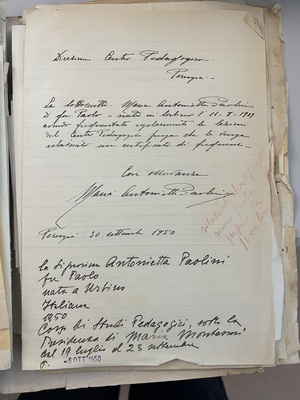 Direzione Centro Pedagogico
Perugia
La sottoscritta Maria Antonietta Paolini
di fu Paolo - nata in Urbino l'11-8-1909
avendo frequentato regolarmente le lezioni
del Centro Pedagogico prega che le venga
rilasciato un certificato di
Con osservanza
Maria Antonietta Paolini
Perugia 30 settembre 1950
la Signorina Antonietta Paolini
fu Paolo
nata a Urbino
Italiana
1950
Corso di Studi Pedagogici, sotto la
Presidenza di Maria Montessori
dal 19 luglio al 23 settembre
OTT. 1950